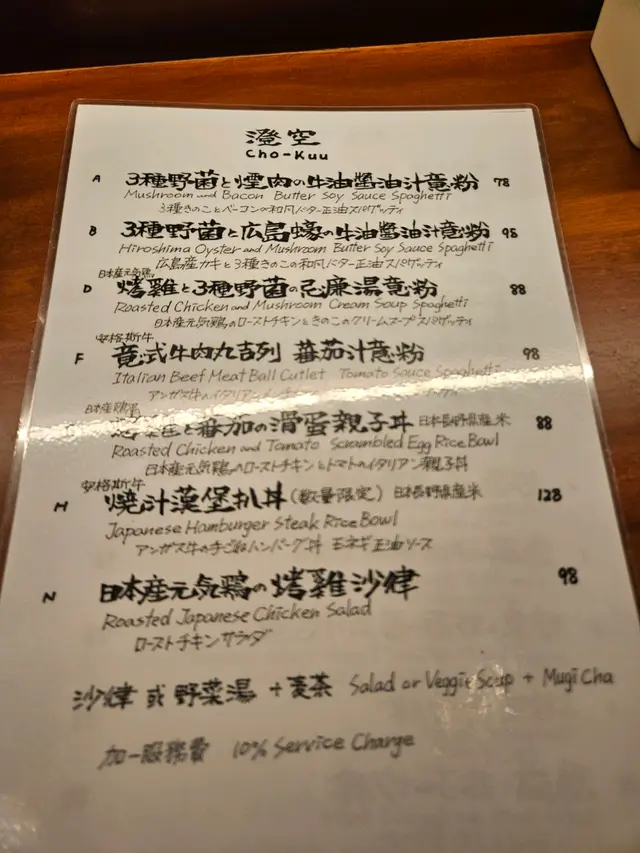 澄空
Cho-Kuu
A 3種野菌と煙肉の牛油醬油汁意粉 78
Mushroom and Bacon Butter Soy Sauce Spaghetti
3種きのことベーコンの和風バター正油スパゲッティ
B 3種野菌と広島蠔の牛油醬油汁意粉 98
Hiroshima Oyster and Mushroom Butter Soy Sauce Spaghetti
広島産カキと3種きのこの和風バター正油スパゲッティ
日本産元気鶏
D 烤雞と3種野菌の忌廉湯意粉 88
Roasted Chicken and Mushroom Cream Soup Spaghetti
日本産元気鶏のローストチキンときのこのクリームスープスパゲッティ
安格斯牛
F 意式牛肉丸吉列 蕃茄汁意粉 98
Italian Beef Meat Ball Cutlet Tomato Sauce Spaghetti
アンガス牛のイタリアン
と蕃茄の滑蛋親子丼 日本長野県産米 88
Roasted Chicken and Tomato Scrambled Egg Rice Bowl
日本産元気鶏のローストチキンとトマトのイタリアン親子丼
安格斯牛
H 燒汁漢堡扒丼(数量限定) 日本長野県産米 128
Japanese Hamburger Steak Rice Bowl
アンガス牛の手ごねハンバーグ丼 玉ネギ正油ソース
N 日本産元気鶏の烤雞沙律 98
Roasted Japanese Chicken Salad
ローストチキンサラダ
沙律 或 野菜湯 +麦茶 Salad or Veggie Soup + Mugi Cha
加一服務費 10% Service Charge